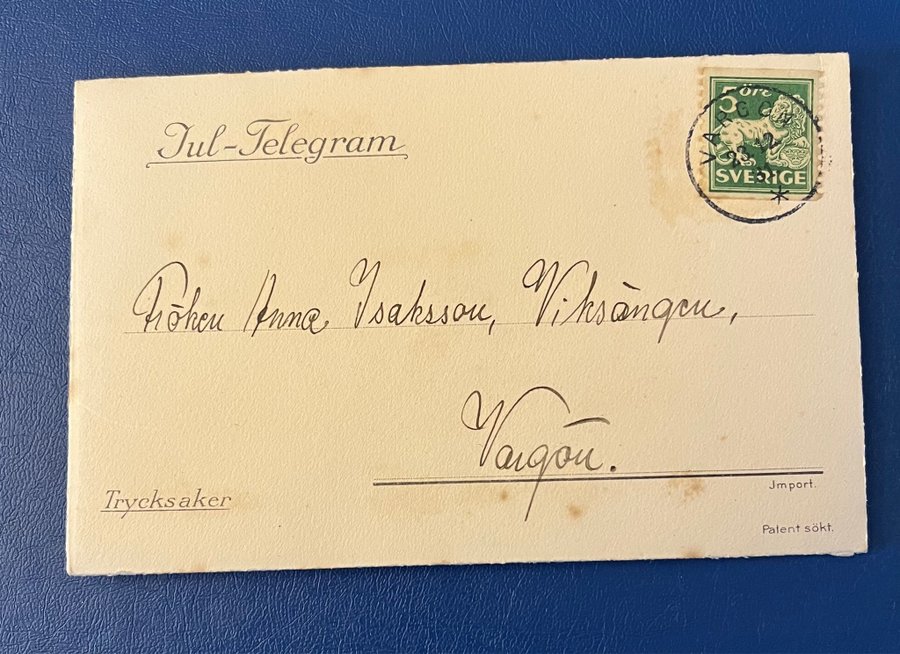 Jul-Telegram
5 öre
SVERIGE
VARGÖN
23 12
Fröken Anna Isaksson, Viksängen,
Vargön.
Trycksaker
Import.
Patent sökt.